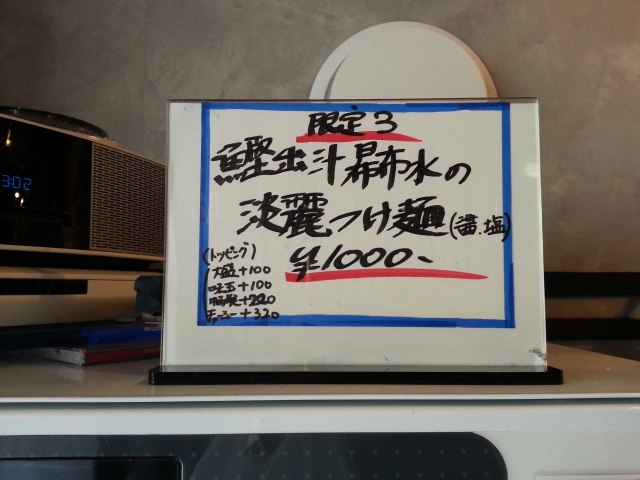 限定3
鰹出汁昆布水の
淡麗つけ麺(醤.塩)
¥1000-
(トッピング)
大盛+100
味玉+100
+220
チャーシュー+320
3:02